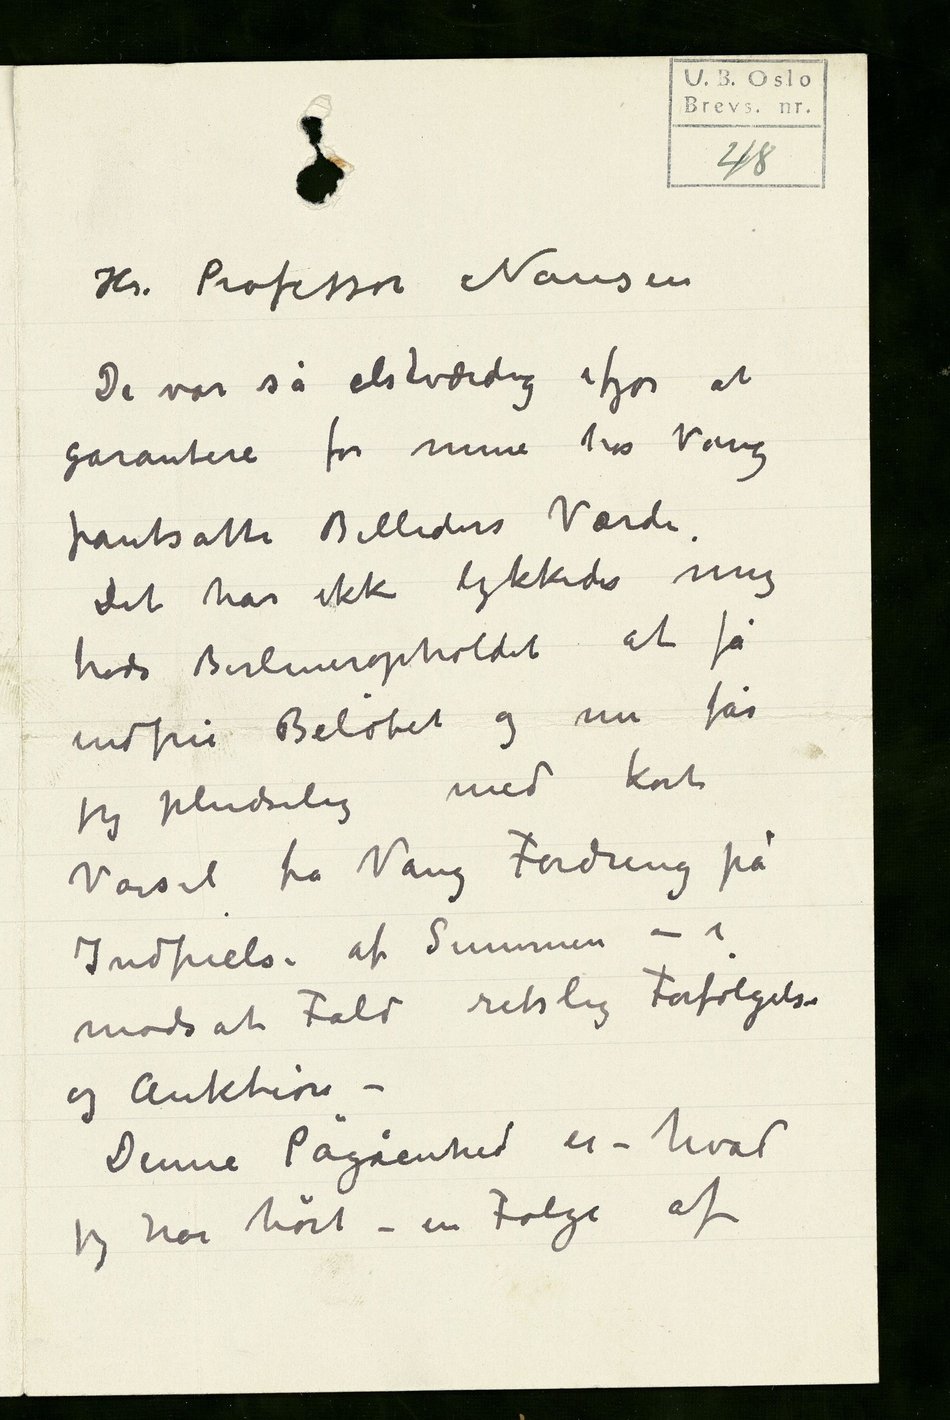 U. B. Oslo
Brevs. nr.
48
Hr. Professor Nansen
De var så elskværdig ifjor at
garantere for mine hos Vang
pantsatte Billeders Værdi.
Det har ikke lykkedes mig
trods Berlineropholdet at få
indfrie Beløbet og nu får
jeg pludselig med kort
Varsel fra Vang Fordring på
Indfrielse af Summen – i
modsat Fald retslig Forfølgelse
og Auktion –
Denne Pågåenhed er – hvad
jeg har hørt – en Følge af